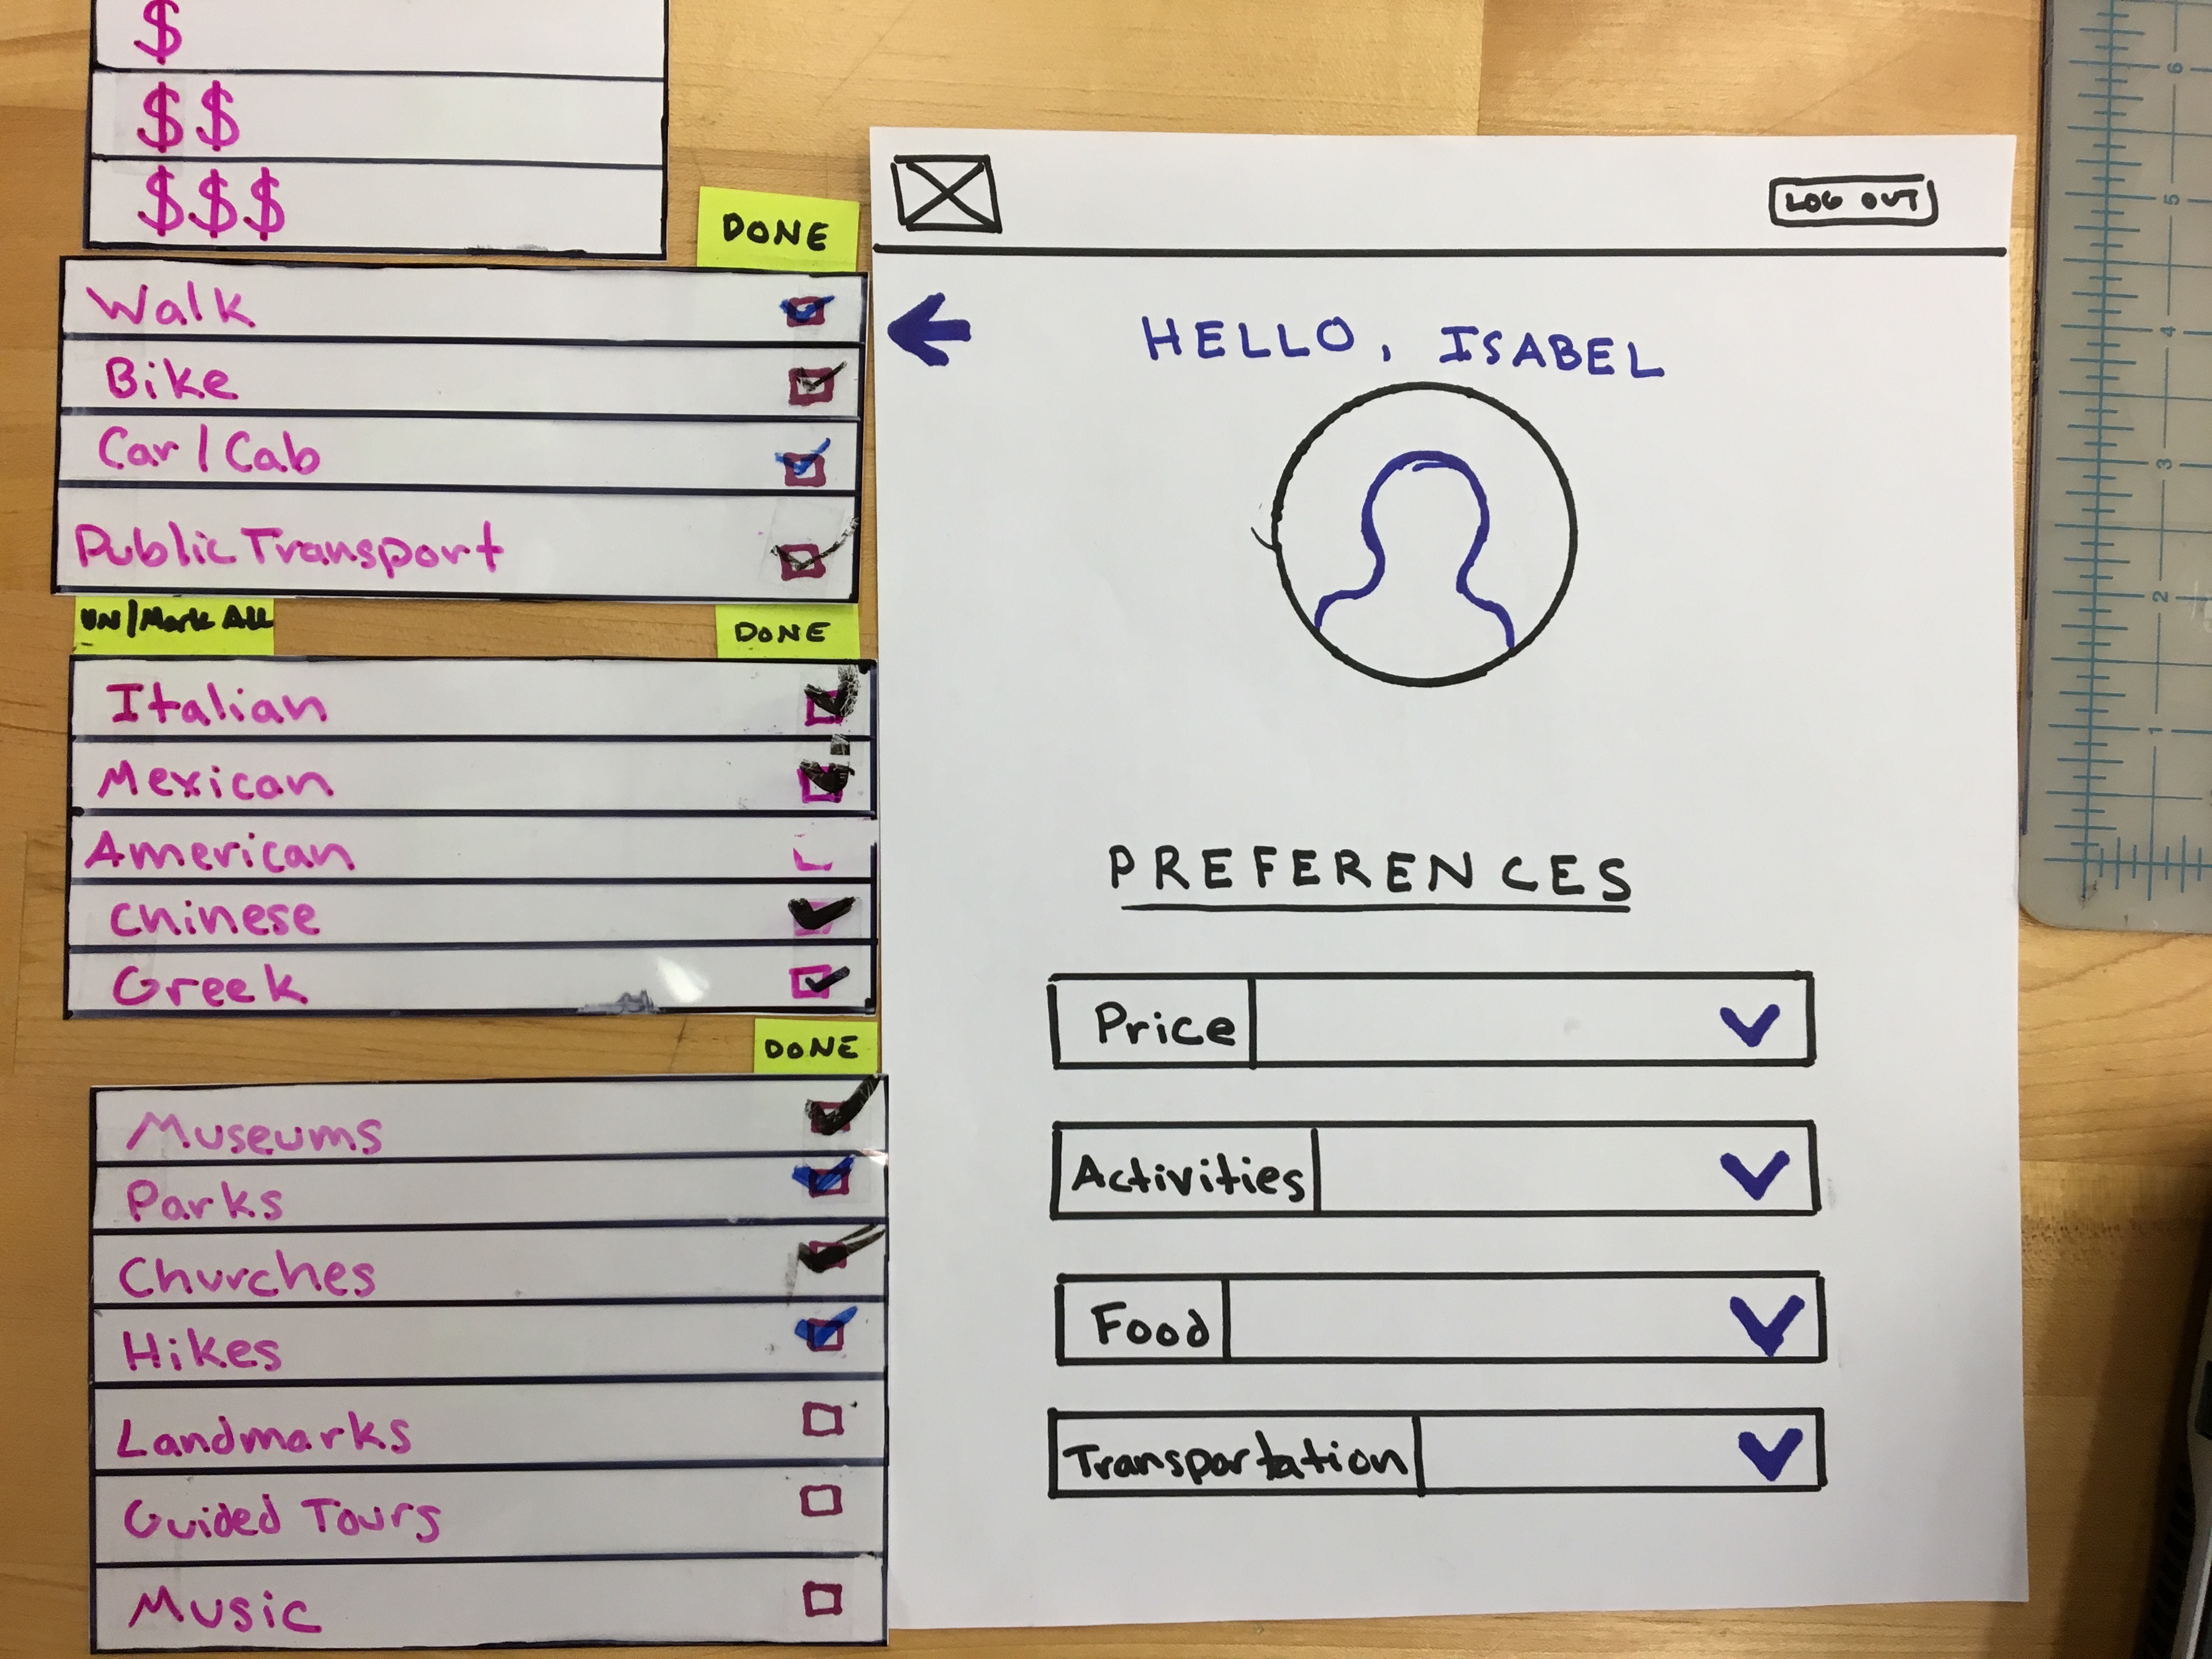 $
$$
$$$
DONE
Walk
Bike
Car/Cab
Public Transport
UN/Mark All
DONE
Italian
Mexican
American
Chinese
Greek
DONE
Museums
Parks
Churches
Hikes
Landmarks
Guided Tours
Music
LOG OUT
HELLO, ISABEL
PREFERENCES
Price
Activities
Food
Transportation
6
5
4
3
2
1